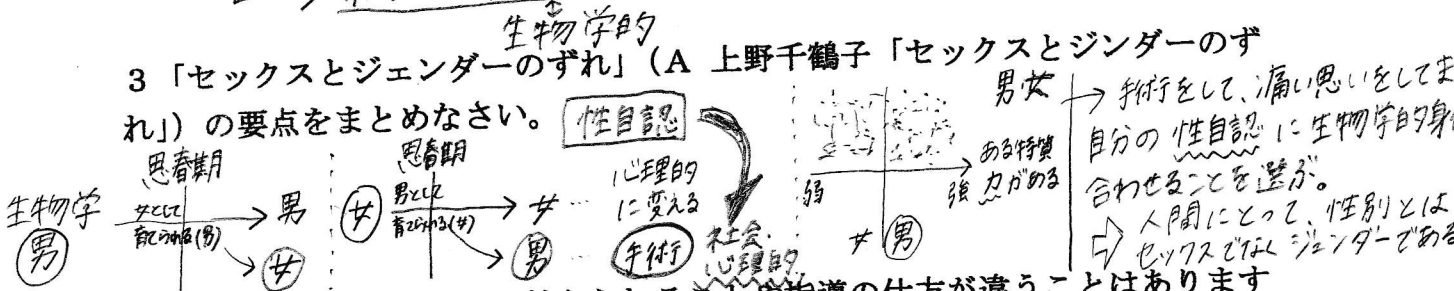 生物学的
3 「セックスとジェンダーのずれ」(A 上野千鶴子「セックスとジンダーのず
れ」)の要点をまとめなさい。
性自認
思春期
生物学
男
女として
育てられる(男)
男
女
思春期
女
男として
育てられる(女)
女
男
心理的
に変える
手術
社会・
心理的
男女
弱
強
ある特質
力がある
女
男
→ 手術をして、痛い思いをしてま
自分の性自認に生物学的身
合わせることを選ぶ。
⇨ 人間にとって、性別とは
セックスでなくジェンダーである
指導の仕方が違うことはあります